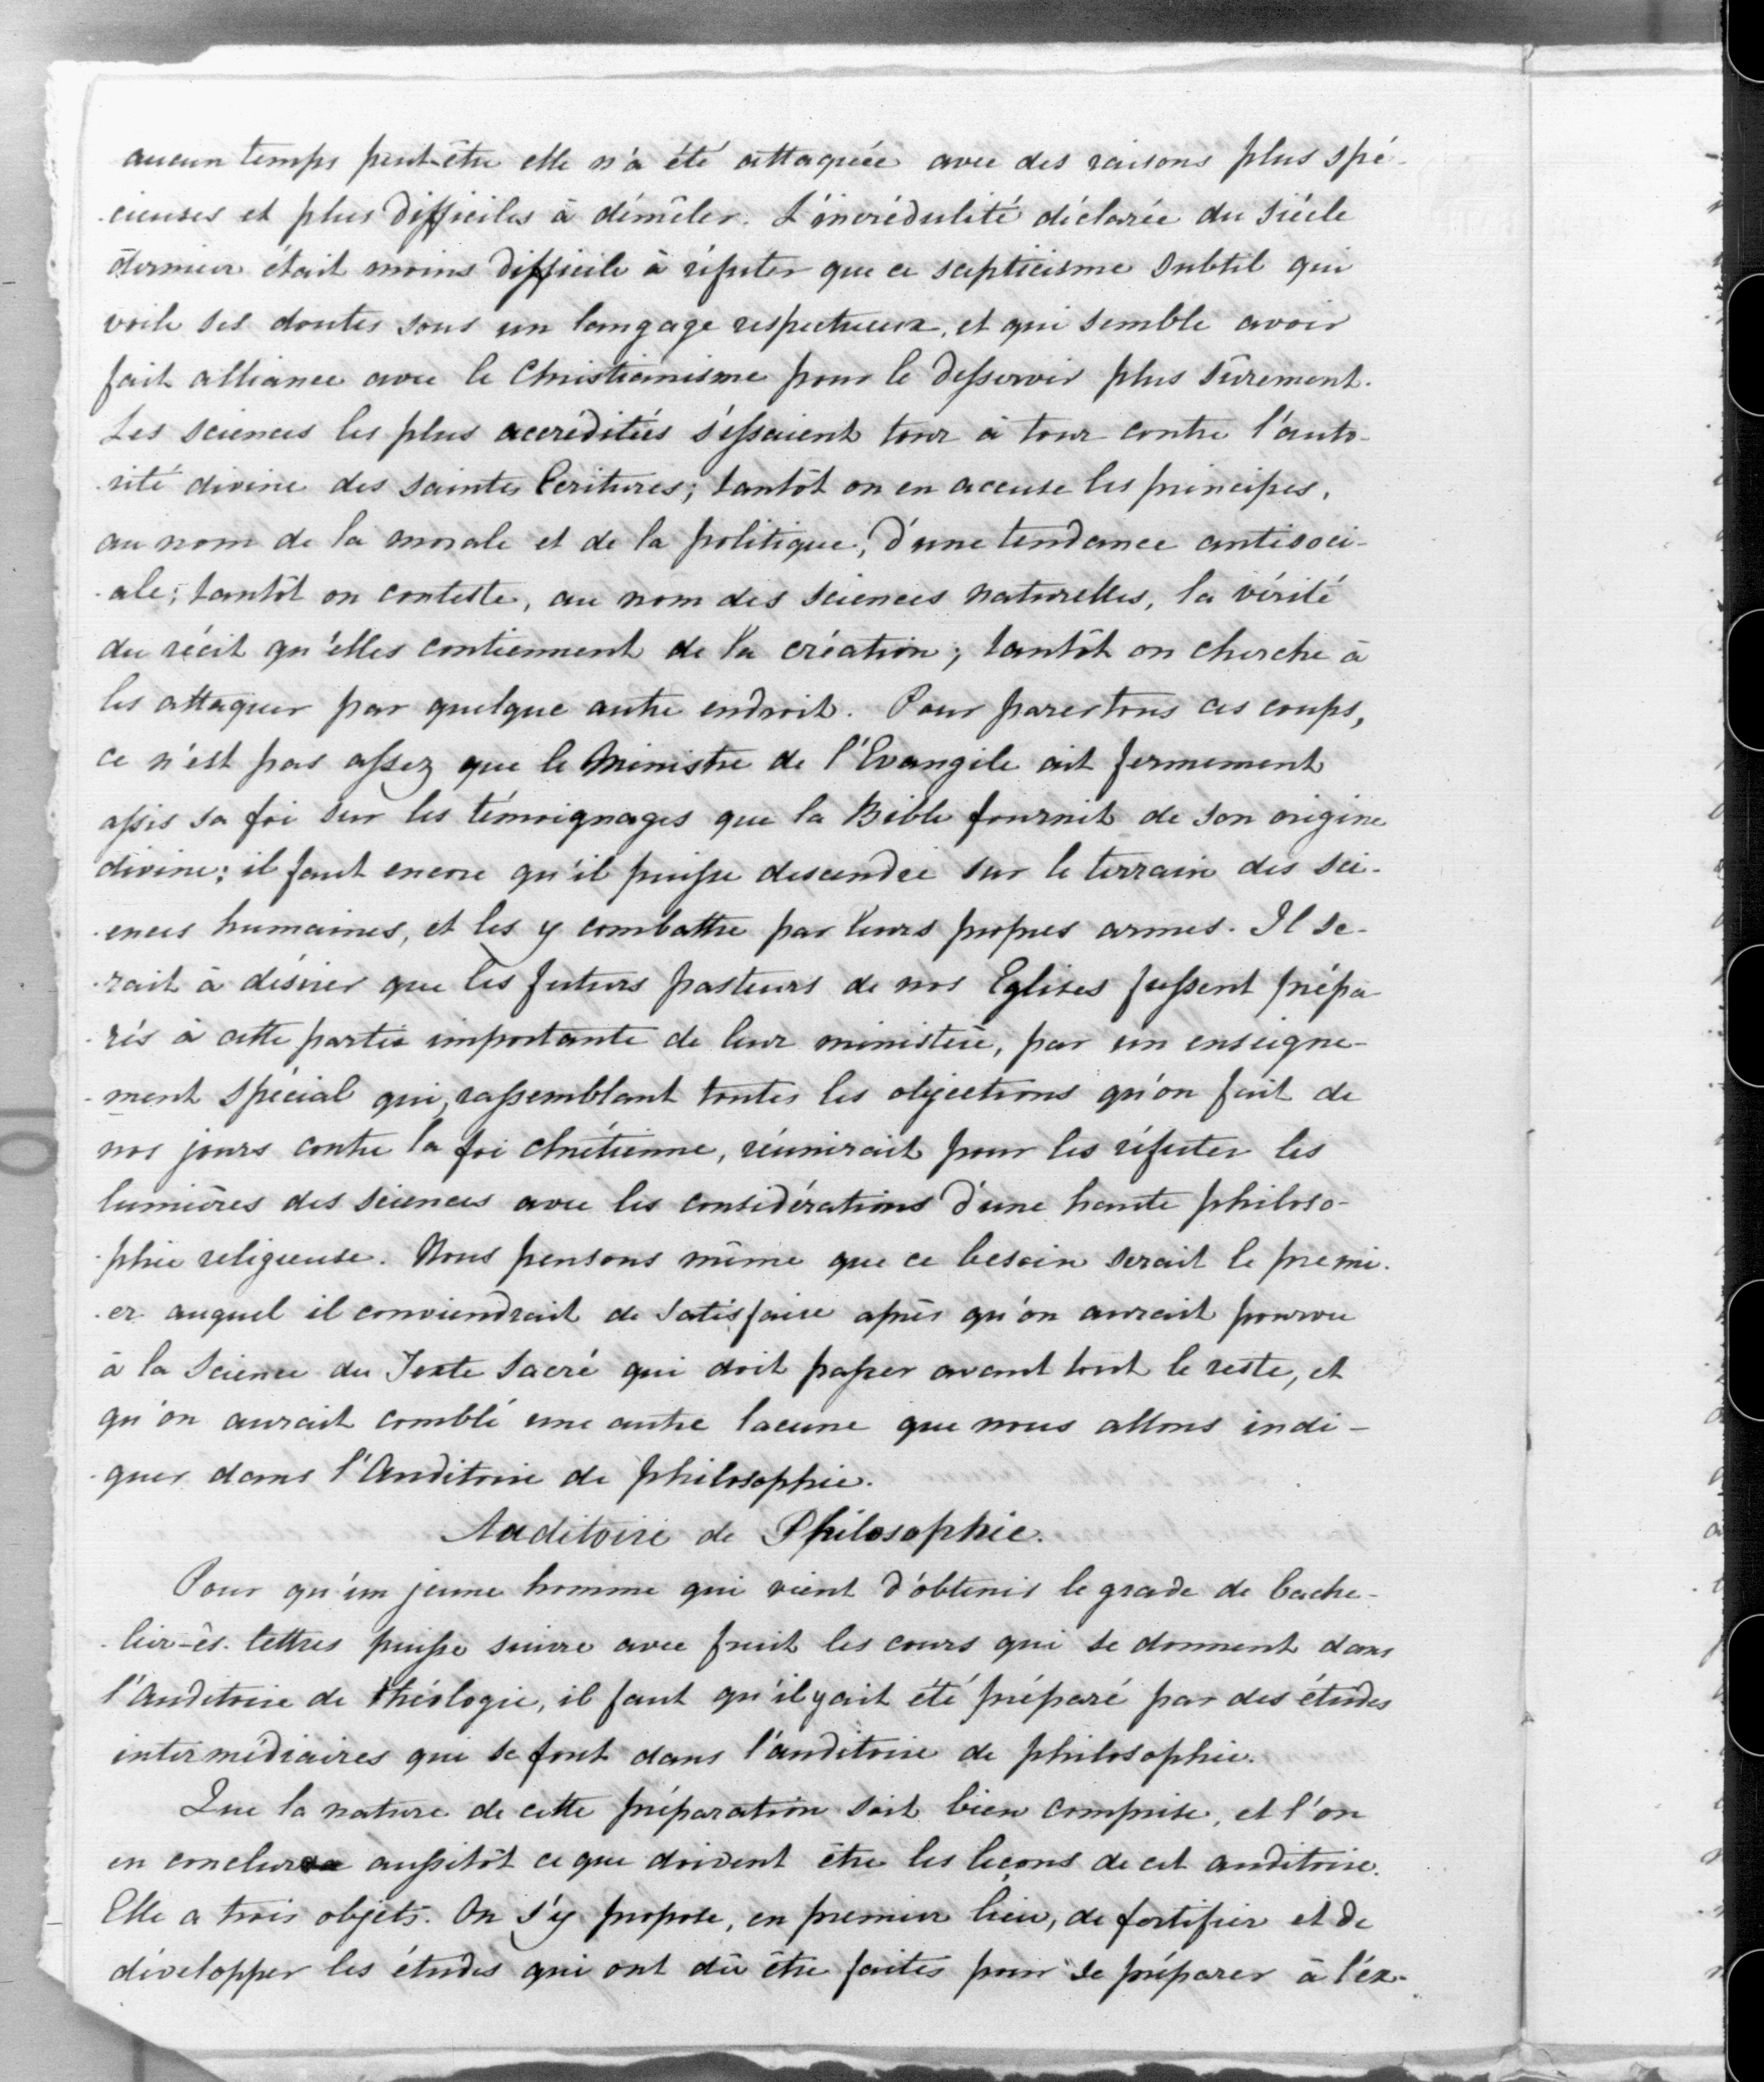 aucun temps peut-être elle n'a été attaquée avec des raisons plus spé-
-cieuses et plus difficiles à démêler. L'incrédulité déclarée du siècle
dernier était moins difficile à réfuter que ce scepticisme subtil qui
voile ses doutes sous un langage respectueux, et qui semble avoir
fait alliance avec le Christianisme pour le desservir plus sûrement.
Les sciences les plus accréditées s'essaient tour à tour contre l'auto-
-rité divine des saintes Ecritures; tantôt on en accuse les principes,
au nom de la morale et de la politique, d'une tendance antisoci-
-ale; tantôt on conteste, au nom des sciences naturelles, la vérité
du récit qu'elles contiennent de la création; tantôt on cherche à
les attaquer par quelque autre endroit. Pour parer tous ces coups,
ce n'est pas assez que le Ministre de l'Evangile ait fermement
assis sa foi sur les témoignages que la Bible fournit de son origine
divine; il faut encore qu'il puisse descendre sur le terrain des sci-
-ences humaines, et les y combattre par leurs propres armes. Il se-
-rait à désirer que les futurs pasteurs de nos Eglises fussent prépa
-rés à cette partie importante de leur ministère, par un enseigne-
-ment spécial qui, rassemblant toutes les objections qu'on fait de
nos jours contre la foi chrétienne, réunirait pour les réfuter les
lumières des sciences avec les considérations d'une haute philoso-
-phie religieuse. Nous pensons même que ce besoin serait le premi-
-er auquel il conviendrait de satisfaire après qu'on aurait pourvu
à la Science du Texte Sacré qui doit passer avant tout le reste, et
qu'on aurait comblé une autre lacune que nous allons indi-
-quer dans l'Auditoire de philosophie.
Auditoire de Philosophie.
Pour qu'un jeune homme qui vient d'obtenir le grade de bache-
-lier-ès-lettres puisse suivre avec fruit les cours qui se donnent dans
l'Auditoire de théologie, il faut qu'il y ait été préparé par des études
intermédiaires qui se font dans l'auditoire de philosophie.
Que la nature de cette préparation soit bien comprise, et l'on
en conclura aussitôt ce que doivent être les leçons de cet auditoire.
Elle a trois objets. On s'y propose, en premier lieu, de fortifier et de
développer les études qui ont dû être faites pour se préparer à l'ex-